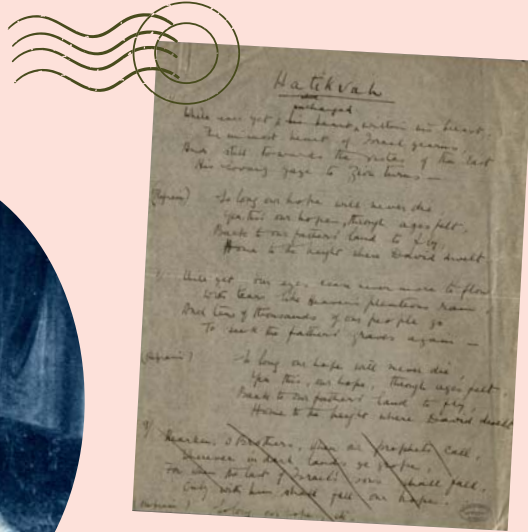 Hatikvah
unchanged
While ever yet, his heart, within his breast,
The inmost heart of Israel yearns,
And still towards the of the East
His gaze to Zion turns —
(Refrain) So long our hope will never die
Yea this our hope, through ages felt,
Back to our fathers' land to fly,
Home to the height where David dwelt
While yet our eyes never more to flow
With tears like heaven's plenteous rain,
And tens of thousands of our people go
To seek the fathers' graves again —
(Refrain) So long our hope will never die
Yea this, our hope, through ages felt,
Back to our fathers' land to fly,
Home to the height where David dwelt
Hearken, O brothers, when our prophets call,
Wherever in dark lands ye grope,
For when the last of Israel's sons shall fall,
Only with him shall fall our hope.
(Refrain) So long our hope